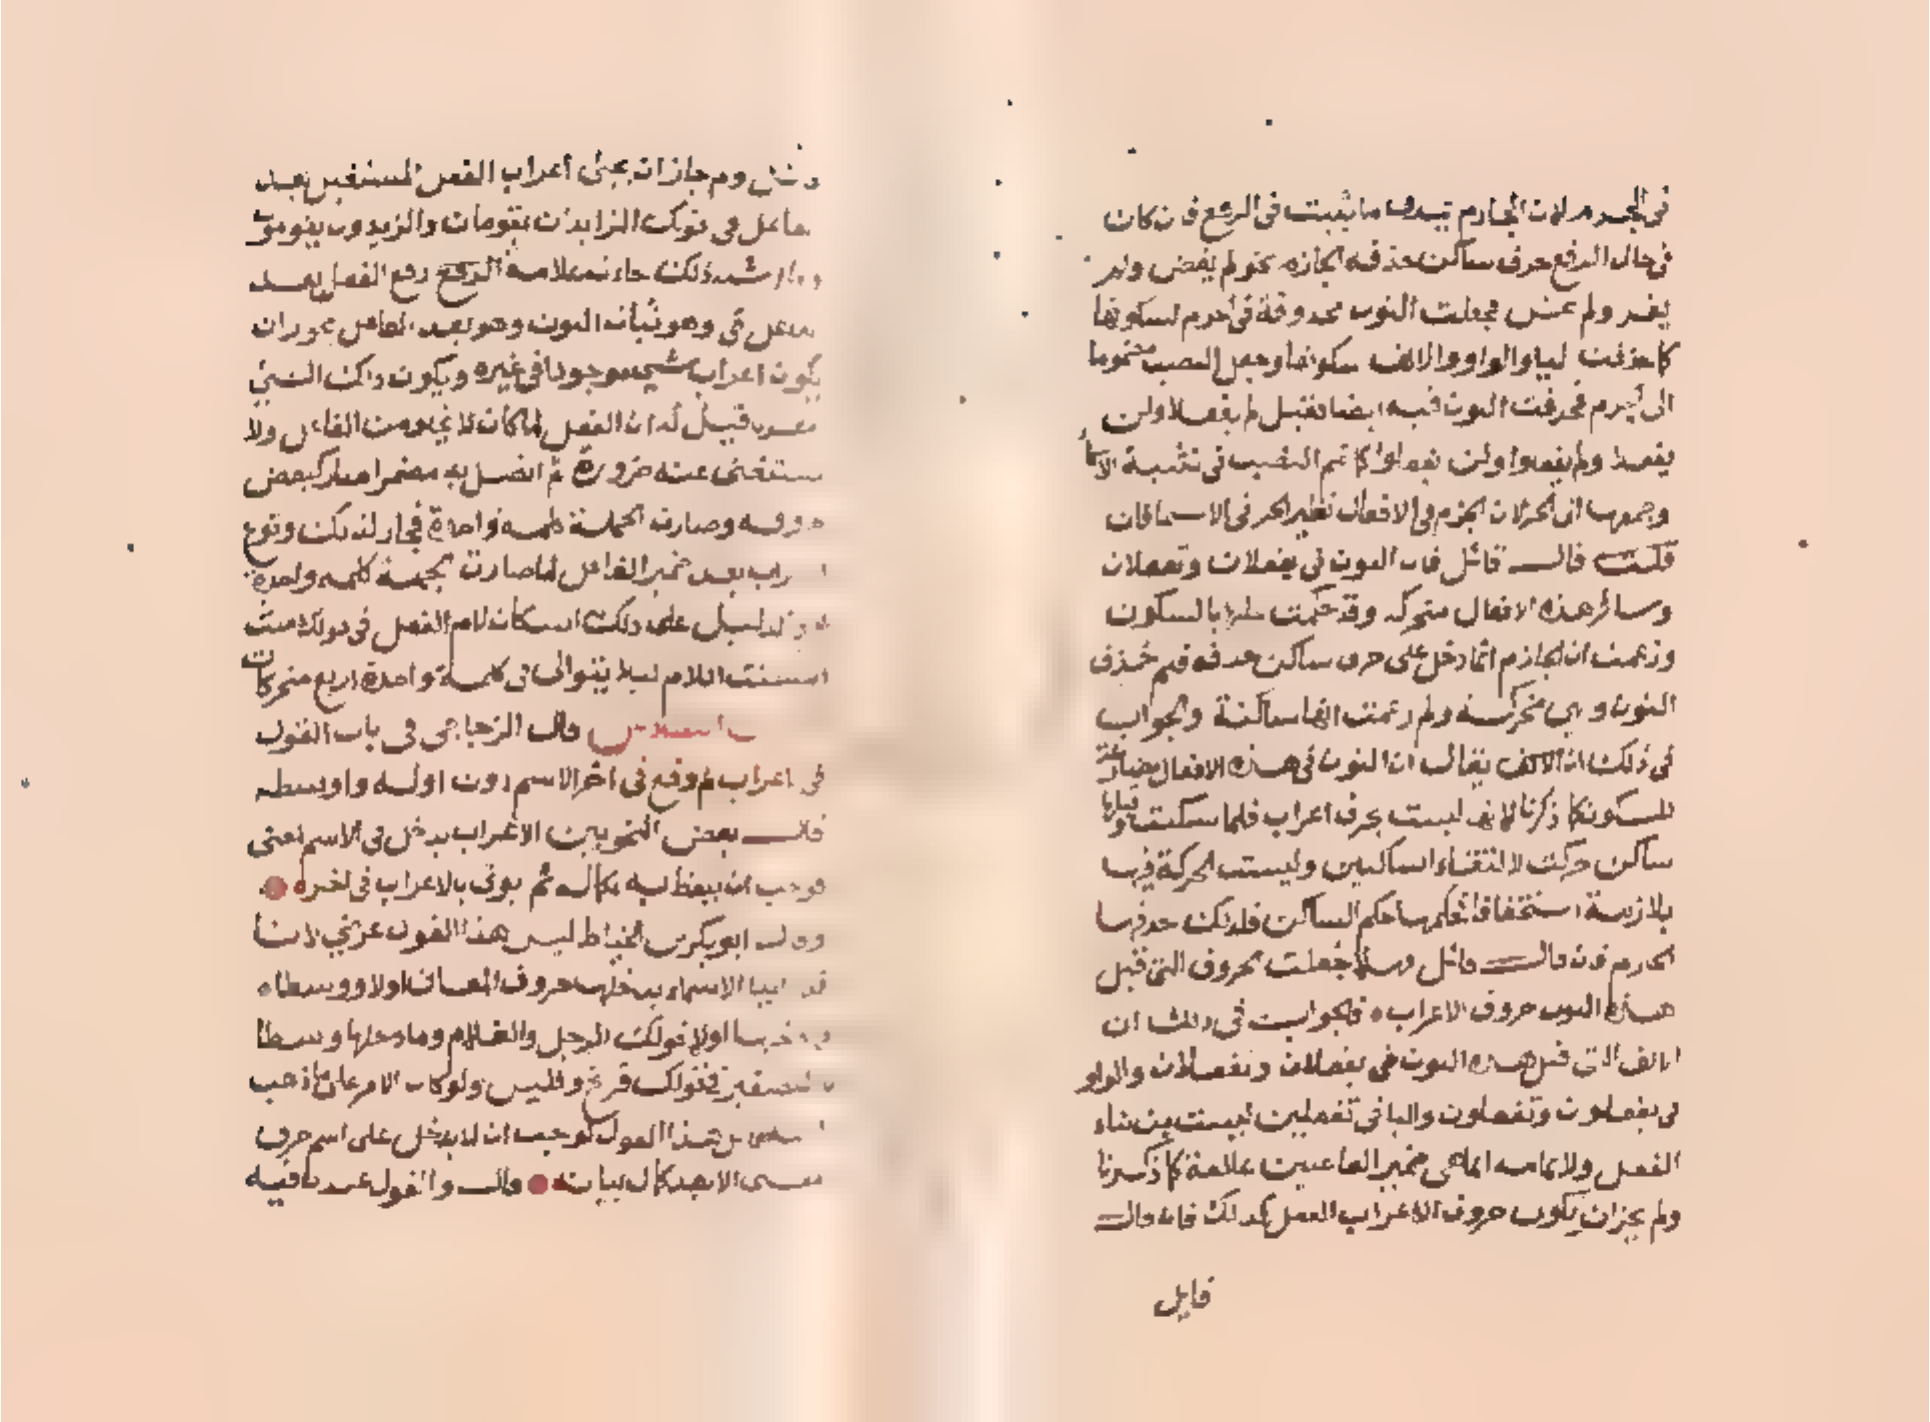 في الجزم لان الجازم ما يثبت في الرفع فان كان
في حال الرفع حرف ساكن حذفه الجازم نحو لم يقض ولم
يغز ولم يخش فجعلت النون محذوفة في الجزم لسكونها
كما حذفت اليا والواو والالف سكونها وجعل النصب مضموما
الى الجزم فحذفت النون فيه ايضا فقيل لم يفعلا ولن
يفعلا ولم يفعلوا ولن يفعلوا كما ضم النصب في تثنية الاسما
وجمعها الى الجر لان الجزم في الافعال نظير الجر في الاسما فان
قلت قال قائل فان النون في يفعلان وتفعلان
وسائر هذه الافعال متحركه وقد حكمت عليها بالسكون
وزعمت ان الجازم اذا دخل على حرف ساكن حذفه فلم حذف
النون وهي متحركة ولم زعمت انها ساكنة والجواب
في ذلك ان يقال ان النون في هذه الافعال مضارعة
للسكون كما ذكرنا لانها ليست بحرف اعراب فلما سكنت وقبلها
ساكن حركت لالتقاء الساكنين وليست الحركة فيها
بلازمة استحقاقا فحكمها حكم الساكن فلذلك حذفها
الجازم فان قال قائل فهلا جعلت الحروف التي قبل
هذه النون حروف الاعراب فالجواب في ذلك ان
الالف التي قبل هذه النون في يفعلان وتفعلان والواو
في يفعلون وتفعلون واليا في تفعلين ليست من بناء
الفعل ولا تمامه انما هي ضمير الفاعلين علامة كما ذكرنا
ولم يجز ان يكون حروف الاعراب الفعل كذلك فان قال
قايل
ولم جاز ان يجئ اعراب الفعل المستقبل بعد
فاعل في قولك الزيدان يقومان والزيدون يقومون
وما اشبه ذلك جاءت علامة الرفع رفع الفعل بعد
فاعل في وهو ثبات النون وهو بعد الفاعل يجوز ان
يكون اعراب شي موجودا في غيره ويكون ذلك الشي
معرب قيل له ان الفعل لما كان لا يخلو من الفاعل ولا
يستغنى عنه ضرورة ثم اتصل به مضمرا صار كبعض
حروفه وصارت الجملة كلمة واحدة فجاز لذلك وقوع
الاعراب بعد ضمير الفاعل لما صارت الجملة كلمه واحدة
والدليل على ذلك اسكان لام الفعل في قولك
اسكنت اللام ليلا يتوالى في كلمة واحدة اربع متحركات
قال الزجاجي في باب القول
في اعراب لم وقع في اخر الاسم دون اوله واوسطه
قال بعض النحويين الاعراب يدخل في الاسم لمعنى
فوجب ان يلفظ به بكماله ثم يوتى بالاعراب في اخره
وقال ابو بكر بن الخياط ليس هذا القول عرضي لاننا
قد راينا الاسماء يدخلها حروف المعاني اولا ووسطا
فما يدخلها اولا قولك الرجل والغلام وما دخلها وسطا
التصغير في قولك فريخ وفليس ولو كان الامر على ما ذهب
هذا القول لوجب ان لا يدخل على اسم حرف
معنى الا بعد كمال بنائه قال والقول عندنا فيه